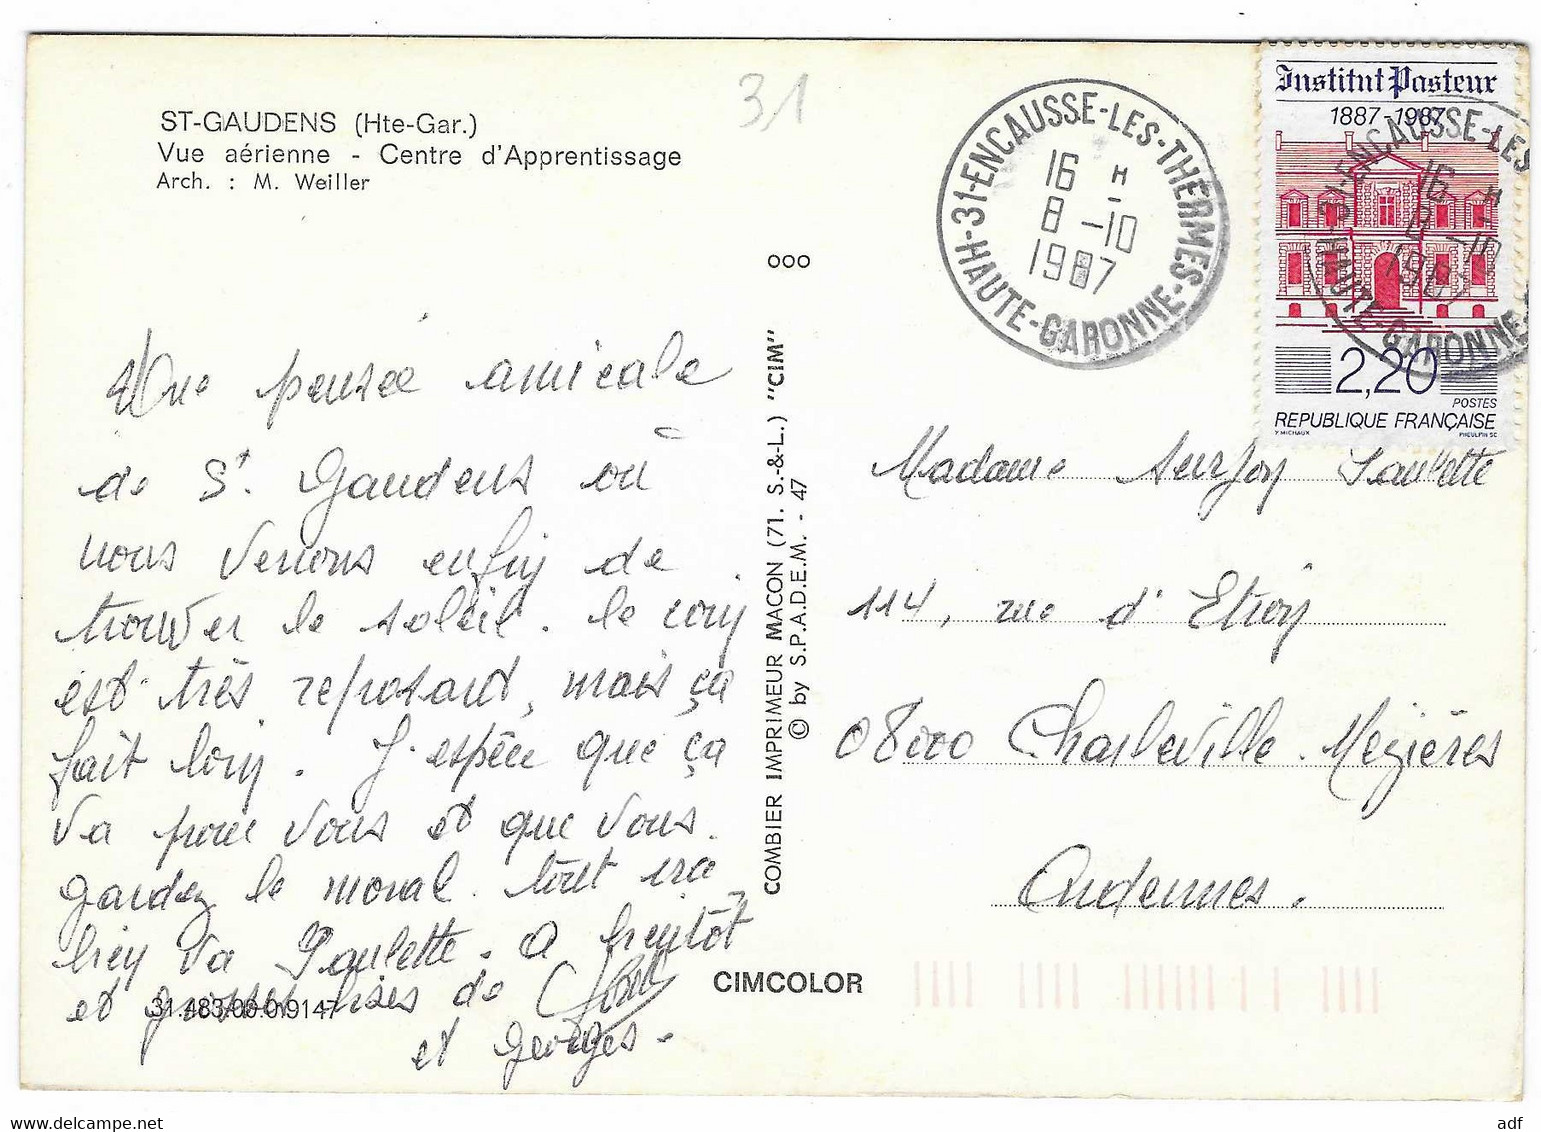 ST-GAUDENS (Hte-Gar.)
Vue aérienne - Centre d'Apprentissage
Arch. : M. Weiller
31
31-ENCAUSSE-LES-THERMES-HAUTE-GARONNE
16 H
8 -10
1987
Institut Pasteur
1887-1987
31-ENCAUSSE-LES
HAUTE-GARONNE
16 H
8 -10
198
2,20
POSTES
REPUBLIQUE FRANÇAISE
Y. MICHAUX PHEULPIN SC
ooo
COMBIER IMPRIMEUR MACON (71. S.-&-L.) "CIM"
© by S.P.A.D.E.M. - 47
Une pensée amicale
de St Gaudens où
nous venons enfin de
trouver le soleil. le coin
est très reposant, mais ça
fait loin. J'espère que ça
va pour vous et que vous
gardez le moral. tout ira
bien va Paulette. A bientôt
et grosses bises de
et Georges.
Madame Paulette
114, rue d'Etion
08000 Charleville-Mézières
Ardennes.
CIMCOLOR
31.483.00.0.9147
delcampe.net
adf